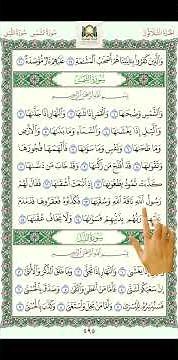 الجزء الثلاثون سورة الشمس سورة الليل
وَالَّذِينَ كَفَرُوا بِآيَاتِنَا هُمْ أَصْحَابُ الْمَشْأَمَةِ ١٩ عَلَيْهِمْ نَارٌ مُّؤْصَدَةٌ ٢٠
سُورَةُ الشَّمْسِ
بِسْمِ اللَّهِ الرَّحْمَٰنِ الرَّحِيمِ
وَالشَّمْسِ وَضُحَاهَا ١ وَالْقَمَرِ إِذَا تَلَاهَا ٢ وَالنَّهَارِ إِذَا جَلَّاهَا ٣
وَاللَّيْلِ إِذَا يَغْشَاهَا ٤ وَالسَّمَاءِ وَمَا بَنَاهَا ٥
وَالْأَرْضِ وَمَا طَحَاهَا ٦ وَنَفْسٍ وَمَا سَوَّاهَا ٧ فَأَلْهَمَهَا فُجُورَهَا
وَتَقْوَاهَا ٨ قَدْ أَفْلَحَ مَن زَكَّاهَا ٩ وَقَدْ خَابَ مَن دَسَّاهَا ١٠
كَذَّبَتْ ثَمُودُ بِطَغْوَاهَا ١١ إِذِ انبَعَثَ أَشْقَاهَا ١٢ فَقَالَ لَهُمْ
رَسُولُ اللَّهِ نَاقَةَ اللَّهِ وَسُقْيَاهَا ١٣ فَكَذَّبُوهُ فَعَقَرُوهَا فَدَمْدَمَ
عَلَيْهِمْ رَبُّهُم بِذَنبِهِمْ فَسَوَّاهَا ١٤ وَلَا يَخَافُ عُقْبَاهَا ١٥
سُورَةُ اللَّيْلِ
بِسْمِ اللَّهِ الرَّحْمَٰنِ الرَّحِيمِ
وَاللَّيْلِ إِذَا يَغْشَىٰ ١ وَالنَّهَارِ إِذَا تَجَلَّىٰ ٢ وَمَا خَلَقَ الذَّكَرَ وَالْأُنثَىٰ ٣
إِنَّ سَعْيَكُمْ لَشَتَّىٰ ٤ فَأَمَّا مَنْ أَعْطَىٰ وَاتَّقَىٰ ٥ وَصَدَّقَ بِالْحُسْنَىٰ ٦
فَسَنُيَسِّرُهُ لِلْيُسْرَىٰ ٧ وَأَمَّا مَن بَخِلَ وَاسْتَغْنَىٰ ٨ وَكَذَّبَ بِالْحُسْنَىٰ ٩
٥٩٥